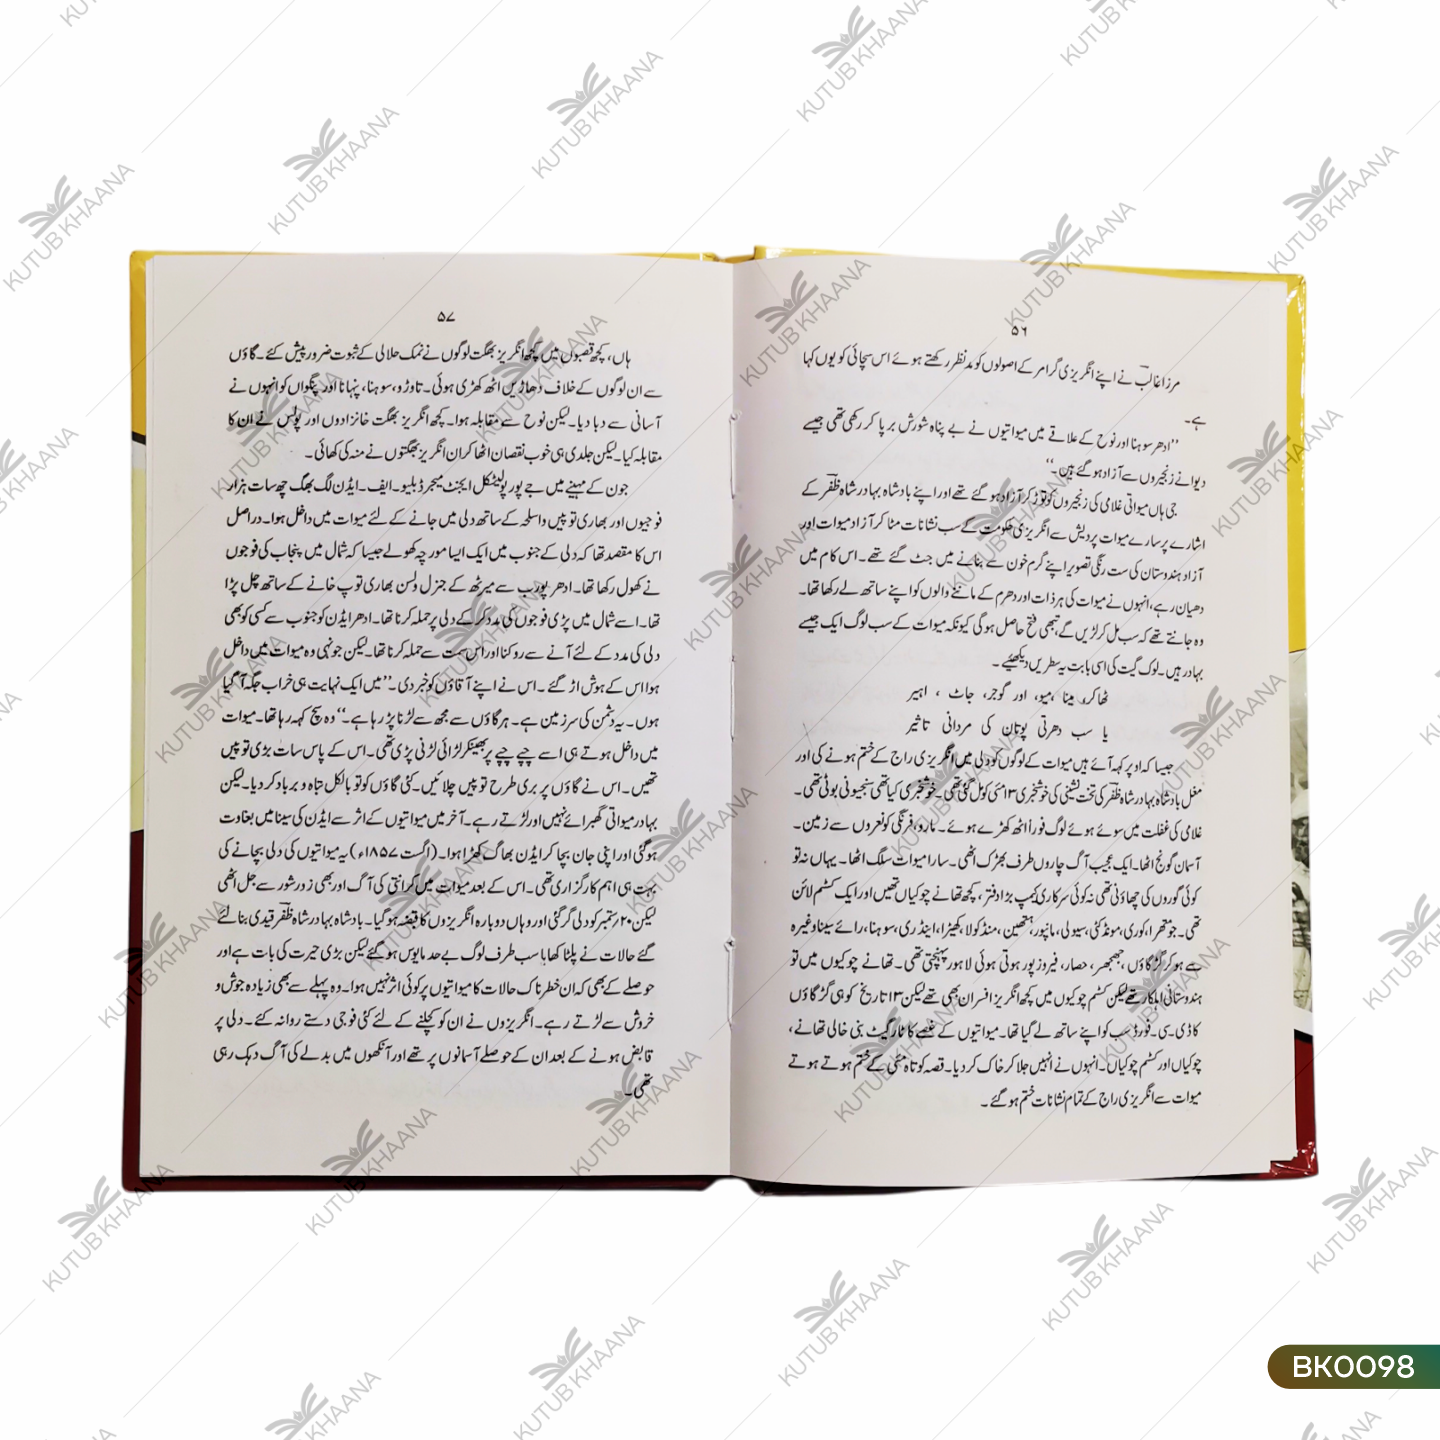 ۵۶
مرزا غالبؔ نے اپنے انگریزی گرامر کے اصولوں کو مدنظر رکھتے ہوئے اس سچائی کو یوں کہا
ہے۔
”ادھر سوہنا اور نوح کے علاقے میں میواتیوں نے بے پناہ شورش برپا کر رکھی تھی جیسے
دیوانے زنجیروں سے آزاد ہو گئے ہیں۔“
جی ہاں میواتی غلامی کی زنجیروں کو توڑ کر آزاد ہو گئے تھے اور اپنے بادشاہ بہادر شاہ ظفرؔ کے
اشارے پر سارے میوات پردیش سے انگریزی حکومت کے سب نشانات مٹا کر آزاد میوات اور
آزاد ہندوستان کی ست رنگی تصویر اپنے گرم خون سے بنانے میں جٹ گئے تھے۔ اس کام میں
دھیان رہے، انہوں نے میوات کی ہر ذات اور دھرم کے ماننے والوں کو اپنے ساتھ لے رکھا تھا۔
وہ جانتے تھے کہ سب مل کر لڑیں گے تبھی فتح حاصل ہوگی کیونکہ میوات کے سب لوگ ایک جیسے
بہادر ہیں۔ لوک گیت کی اسی بابت یہ سطریں دیکھئیے۔
ٹھاکر، مینا، میو، اور گوجر، جاٹ، اہیر
یا سب دھرتی پوتان کی مردانی تاثیر
جیسا کہ اوپر کہہ آئے ہیں میوات کے لوگوں کو دلی میں انگریزی راج کے ختم ہونے کی اور
مغل بادشاہ بہادر شاہ ظفرؔ کی تخت نشینی کی خوشخبری ۱۳ مئی کو مل گئی تھی۔ خوشخبری کیا تھی سنجیونی بوٹی تھی۔
غلامی کی غفلت میں سوئے ہوئے لوگ فوراً اٹھ کھڑے ہوئے۔ مارو، فرنگی کو نعروں سے زمین۔
آسمان گونج اٹھا۔ ایک عجیب آگ چاروں طرف بھڑک اٹھی۔ سارا میوات سلگ اٹھا۔ یہاں نہ تو
کوئی گوروں کی چھاؤنی تھی نہ کوئی سرکاری کیمپ بڑا دفتر، کچھ تھانے چوکیاں تھیں اور ایک کسٹم لائن
تھی۔ جو متھرا، کوری، مونڈکٹی، سیولی، مانپور، ہتھین، منڈکولا، کھیڑا، اینڈری، سوہنا، رائے سینا وغیرہ
سے ہو کر گڑگاؤں، جھجھر، حصار، فیروزپور ہوتی ہوئی لاہور پہنچتی تھی۔ تھانے چوکیوں میں تو
ہندوستانی اہلکار تھے لیکن کسٹم چوکیوں میں کچھ انگریز افسران بھی تھے لیکن ۱۳ تاریخ کو ہی گڑگاؤں
کا ڈی۔سی۔ فورڈ سب کو اپنے ساتھ لے گیا تھا۔ میواتیوں کے غصے کا ٹارگیٹ بنی خالی تھانے،
چوکیاں اور کسٹم چوکیاں۔ انہوں نے انہیں جلا کر خاک کر دیا۔ قصہ کوتاہ مئی کے ختم ہوتے ہوتے
میوات سے انگریزی راج کے تمام نشانات ختم ہو گئے۔
۵۷
ہاں، کچھ قصبوں میں کچھ انگریز بھگت لوگوں نے نمک حلالی کے ثبوت ضرور پیش کئے۔ گاؤں
سے ان لوگوں کے خلاف دھاڑیں اٹھ کھڑی ہوئی۔ تاوڑو، سوہنا، پنہانا اور پنگواں کو انہوں نے
آسانی سے دبا دیا۔ لیکن نوح سے مقابلہ ہوا۔ کچھ انگریز بھگت خانزادوں اور پولس نے ان کا
مقابلہ کیا۔ لیکن جلدی ہی خوب نقصان اٹھا کر ان انگریز بھگتوں نے منہ کی کھائی۔
جون کے مہینے میں جے پور پولیٹکل ایجنٹ میجر ڈبلیو۔ ایف۔ ایڈن لگ بھگ چھ سات ہزار
فوجیوں اور بھاری توپیں و اسلحہ کے ساتھ دلی میں جانے کے لئے میوات میں داخل ہوا۔ دراصل
اس کا مقصد تھا کہ دلی کے جنوب میں ایک ایسا مورچہ کھولے جیسا کہ شمال میں پنجاب کی فوجوں
نے کھول رکھا تھا۔ ادھر پورب سے میرٹھ کے جنرل ولسن بھاری توپ خانے کے ساتھ چل پڑا
تھا۔ اسے شمال میں پڑی فوجوں کی مدد کر کے دلی پر حملہ کرنا تھا۔ ادھر ایڈن کو جنوب سے کسی کو بھی
دلی کی مدد کے لئے آنے سے روکنا اور اس سمت سے حملہ کرنا تھا۔ لیکن جونہی وہ میوات میں داخل
ہوا اس کے ہوش اڑ گئے۔ اس نے اپنے آقاؤں کو خبر دی۔ ”میں ایک نہایت ہی خراب جگہ آ گیا
ہوں۔ یہ دشمن کی سرزمین ہے۔ ہر گاؤں سے مجھ سے لڑنا پڑ رہا ہے۔“ وہ سچ کہہ رہا تھا۔ میوات
میں داخل ہوتے ہی اسے چپے چپے پر بھینکر لڑائی لڑنی پڑی تھی۔ اس کے پاس سات بڑی توپیں
تھیں۔ اس نے گاؤں پر بری طرح توپیں چلائیں۔ کئی گاؤں کو تو بالکل تباہ و برباد کر دیا۔ لیکن
بہادر میواتی گھبرائے نہیں اور لڑتے رہے۔ آخر میں میواتیوں کے اثر سے ایڈن کی سینا میں بغاوت
ہو گئی اور اپنی جان بچا کر ایڈن بھاگ کھڑا ہوا۔ (اگست ۱۸۵۷ء) یہ میواتیوں کی دلی بچانے کی
بہت ہی اہم کارگزاری تھی۔ اس کے بعد میوات میں کرانتی کی آگ اور بھی زور شور سے جل اٹھی
لیکن ۲۰ ستمبر کو دلی گر گئی اور وہاں دوبارہ انگریزوں کا قبضہ ہو گیا۔ بادشاہ بہادر شاہ ظفرؔ قیدی بنا لئے
گئے حالات نے پلٹا کھایا سب طرف لوگ بے حد مایوس ہو گئے لیکن بڑی حیرت کی بات ہے اور
حوصلے کے بھی کہ ان خطرناک حالات کا میواتیوں پر کوئی اثر نہیں ہوا۔ وہ پہلے سے بھی زیادہ جوش و
خروش سے لڑتے رہے۔ انگریزوں نے ان کو کچلنے کے لئے کئی فوجی دستے روانہ کئے۔ دلی پر
قابض ہونے کے بعد ان کے حوصلے آسمانوں پر تھے اور آنکھوں میں بدلے کی آگ دہک رہی
تھی۔
KUTUB KHAANA
BK0098